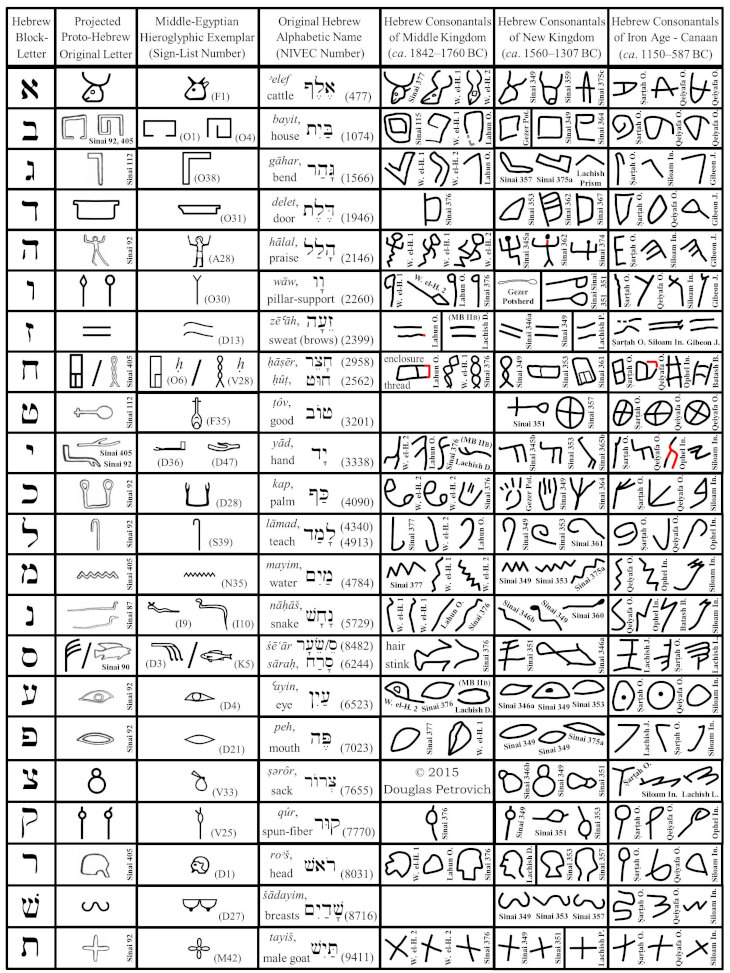 Hebrew Block-Letter
Projected Proto-Hebrew Original Letter
Middle-Egyptian Hieroglyphic Exemplar (Sign-List Number)
Original Hebrew Alphabetic Name (NIVEC Number)
Hebrew Consonantals of Middle Kingdom (ca. 1842–1760 BC)
Hebrew Consonantals of New Kingdom (ca. 1560–1307 BC)
Hebrew Consonantals of Iron Age - Canaan (ca. 1150–587 BC)
א
(F1)
ʾelef, אֶלֶף
cattle (477)
Sinai 377 W. el-H. 1 W. el-H. 2
Sinai 349 Sinai 359 Sinai 375c
Ṣarṭah O. Qeiyafa O. Qeiyafa O.
ב
Sinai 92, 405
(O1) (O4)
bayit, בַּיִת
house (1074)
Sinai 115 W. el-H. 1 Lahun O.
Gezer Pot. Sinai 349 Sinai 364
Ṣarṭah O. Qeiyafa O. Qeiyafa O.
ג
Sinai 112
(O38)
gāhar, גָּהַר
bend (1566)
W. el-H. 1 W. el-H. 2 Lahun O.
Sinai 357 Sinai 375a Lachish Prism
Ṣarṭah O. Siloam In. Gibeon J.
ד
(O31)
delet, דֶּלֶת
door (1946)
Sinai 376
Sinai 353 Sinai 362 Sinai 367
Ṣarṭah O. Qeiyafa O. Gibeon J.
ה
Sinai 92
(A28)
hālal, הָלַל
praise (2146)
W. el-H. 1 W. el-H. 2 W. el-H. 2
Sinai 345a Sinai 362 Sinai 374
Ṣarṭah O. Siloam In. Gibeon J.
ו
(O30)
wāw, וָו
pillar-support (2260)
W. el-H. 1 W. el-H. 2 Lahun O. Sinai 376
Gezer Potsherd Sinai 351 Sinai 351
Ṣarṭah O. Qeiyafa O. Siloam In. Gibeon J.
ז
(D13)
zēʿāh, זֵעָה
sweat (brows) (2399)
Lahun O. (MB IIB) Lachish D.
Sinai 346a Sinai 349 Lachish P.
Ṣarṭah O. Siloam In. Gibeon J.
ח
/ Sinai 405
ḥ (O6) / ḥ (V28)
ḥāṣēr, חָצֵר (2958)
ḥûṭ, חוּט (2562)
enclosure
thread
Lahun O. W. el-H. 1 Sinai 376
Sinai 349 Sinai 353 Sinai 361
Ṣarṭah O. Qeiyafa O. Ophel In. Batash B.
ט
Sinai 112
(F35)
ṭôv, טוֹב
good (3201)
Sinai 351 Sinai 357
Ṣarṭah O. Qeiyafa O. Qeiyafa O.
י
Sinai 405
Sinai 92
(D36) (D47)
yād, יָד
hand (3338)
W. el-H. 2 Lahun O. Sinai 376 (MB IIB) Lachish D.
Sinai 345b Sinai 353 Sinai 365b
Ṣarṭah O. Qeiyafa O. Ophel In. Siloam In.
כ
Sinai 92
(D28)
kap, כַּף
palm (4090)
W. el-H. 2 W. el-H. 2 Sinai 376
Gezer Pot. Sinai 349 Sinai 364
Ṣarṭah O. Qeiyafa O. Siloam In.
ל
Sinai 92
(S39)
lāmad, לָמַד (4340)
teach (4913)
Sinai 377 W. el-H. 2 Lahun O.
Sinai 349 Sinai 353 Sinai 361
Ṣarṭah O. Qeiyafa O. Ophel In.
מ
Sinai 405
(N35)
mayim, מַיִם
water (4784)
Sinai 377 W. el-H. 1 W. el-H. 2
Sinai 349 Sinai 353 Sinai 375a
Qeiyafa O. Ophel In. Siloam In.
נ
Sinai 87
(I9) (I10)
nāḥāš, נָחָשׁ
snake (5729)
W. el-H. 1 W. el-H. 1 Lahun O. Sinai 376
Sinai 346b Sinai 349 Sinai 360
Qeiyafa O. Ophel In. Batash B. Siloam In.
ס
/ Sinai 90
(D3) / (K5)
śēʿār ס/שֵׂעָר (8482)
sāraḥ, סָרַח (6244)
hair
stink
Sinai 376
Sinai 351 Sinai 346a
Lachish J. Ṣarṭah O. Lachish L.
ע
Sinai 92
(D4)
ʿayin, עַיִן
eye (6523)
W. el-H. 2 Sinai 376 (MB IIB) Lachish D.
Sinai 346a Sinai 349 Sinai 353
Ṣarṭah O. Qeiyafa O. Siloam In.
פ
Sinai 92
(D21)
peh, פֶּה
mouth (7023)
Sinai 377 W. el-H. 1
Sinai 349 Sinai 349 Sinai 375a
Lachish J. Qeiyafa O. Siloam In.
צ
(V33)
ṣərôr, צְרוֹר
sack (7655)
© 2015
Douglas Petrovich
Sinai 346b Sinai 349 Sinai 351
Ṣarṭah O. Siloam In. Lachish L.
ק
(V25)
qûr, קוּר
spun-fiber (7770)
Sinai 376
Sinai 349 Sinai 351 Sinai 353
Ṣarṭah O. Qeiyafa O. Ophel In.
ר
Sinai 405
(D1)
roʾš, רֹאשׁ
head (8031)
W. el-H. 1 Lahun O. Sinai 376
Lachish D. Sinai 353 Sinai 357
Ṣarṭah O. Qeiyafa O. Siloam In.
שׁ
(D27)
šādayim, שָׁדַיִם
breasts (8716)
Sinai 349 Sinai 353 Sinai 357
Ṣarṭah O. Qeiyafa O. Siloam In.
ת
Sinai 92
(M42)
tayiš, תַּיִשׁ
male goat (9411)
W. el-H. 2 W. el-H. 2 Sinai 376
Sinai 349 Sinai 351 Lachish P.
Ṣarṭah O. Qeiyafa O. Siloam In.